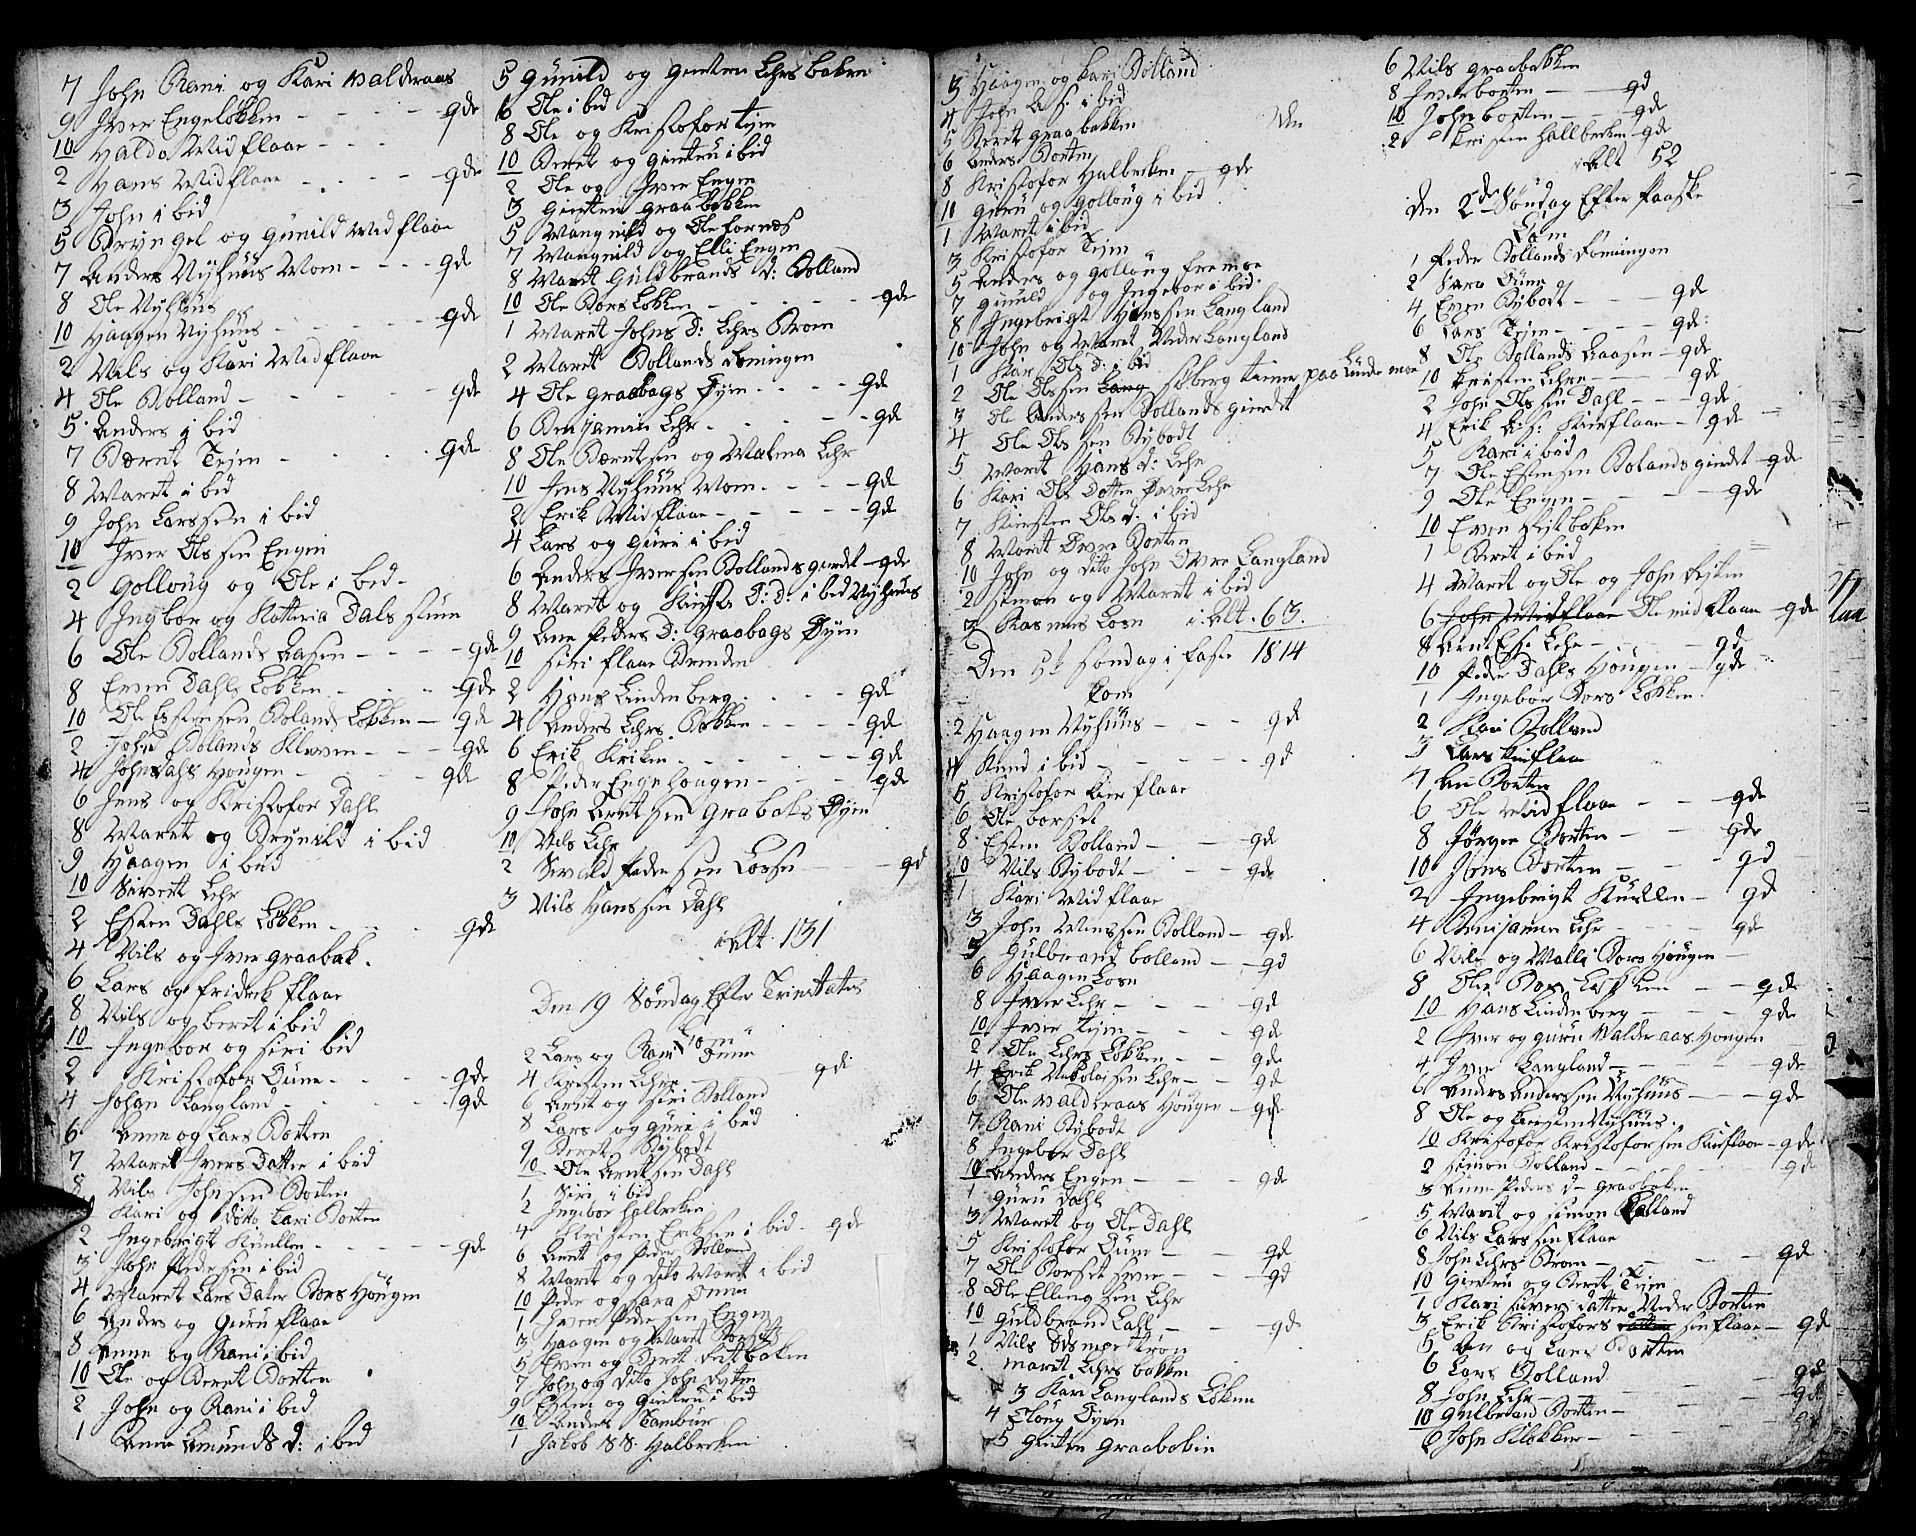 7 John Rani og Kari Valderaas
9 Iver Engeløkken - - - - gde
10 Haldo Midflaae - - -
2 Hans Midflaae - - - gde
3 John i bid
5 Bryngel og Gunild Midflaae
7 Anders Nyhuus Moen - - - gde
8 Ole Nyhuus
10 Haagen Nyhuus - - - - gde
2 Nils og Kari Midflaae
4 Ole Bolland - - - - gde
5 Anders i bid
7 Berent Tejen - - - - gde
8 Maret i bid
9 John Larssen i bid
10 Iver Olssen Engen
2 Golloug og Ole i bid
4 Ingbor og Katteria Dals
6 Ole Bollands Aasen - - - - gde
8 Even Dahls Løkken - - - gde
10 Ole Estensen Bolands Løkken - gde
2 John Bolands Kleven - - - gde
4 John Dahls Hougen - - - gde
6 Jens og Kristofor Dahl
8 Maret og Brynild i bid
9 Haagen i bid
10 Sivert Lehr
2 Esten Dahls Løkken - - - gde
4 Nils og Iver Graabak
6 Lars og Friderk Flaae
8 Nils og Beret i bid
10 Ingebor og Siri bid
2 Kristofor Duue - - - - gde
4 Johan Langland - - - - gde
6 Anne og Lars Borten
7 Maret Ivers Datter i bid
8 Nils Johnsen Borten
9 Kari og Ditto Kari Borten
2 Ingebrigt Kuullen - - - - gde
3 John Pedersen i bid
4 Maret Lars Dater Bors Hougen
6 Anders og Guru Flaae
8 Anne og Rani i bid
10 Ole og Beret Borten
2 John og Rani i bid
1 Anne Amunds d: i bid
5 Gunild og Gurtru Lehrs Baken
6 Ole i bid
8 Ole og Kristofor Tejen
10 Beret og Gurtru i bid
2 Ole og Iver Engen
3 Gurten Graabakken
5 Mangnild og Ole Fornes
7 Mangnild og Elli Engen
8 Marit Guldbrands d: Bolland
10 Ole Bors Løkken - - - - gde
1 Maret Johns D: Lehrs Broen
2 Maret Bollands Eoningen
4 Ole Graabags Øyen - - - gde
6 Benjamin Lehr - - - - gde
8 Ole Berntsen og Malena Lehr
10 Jens Nyhuus Moen - - - gde
2 Erik Midflaae - - - - gde
4 Lars og Guri i bid
6 Anders Iversen Bollands Gierdet - gde
8 Marit og D: D: i bid Nyhuus
9 Ane Peders D: Graabags Øyen
10 Siri Flaae Brenden
2 Hans Lindenberg - - - gde
4 Anders Lehrs Bakken - - - gde
6 Erik Kirken - - - - gde
8 Peder Engehougen - - - gde
9 John Arntsen Grabaks Øyen
10 Nils Lehr
2 Sivald Pedersen Losen - - gd
3 Nils Hanssen Dahl
i alt 131
Den 19 Søndag Efter Trinitates
kom
2 Lars og Rani Duue
4 Kirsten Lehr - - - - gde
6 Arnt og Siri Bolland
8 Lars og Guri i bid
9 Beret Bybodt
10 Ole Arntsen Dahl
1 Siri i bid
2 Ingebor Halbecken
4 Kristen Eriksen i bid - gde
6 Arnt og Peder Bolland
8 Marit og Dito Marit i bid
10 Peder og Sara Duue
1 Iver Pedersen Engen
3 Haagen og Maret Borset
5 Even og Beret Feitbaken
7 John og Dito John Lyten
9 Esten og Gurtru i bid
10 Anders Tambur
1 Jakob Halbecken
3 Haagen og Kari Bolland
4 John A. S. i bid
5 Beret Graabakken
6 Anders Borten
8 Kristofor Halbecken - gde
10 Guru og Golloug i bid
1 Marit i bid
3 Kristofor Tejen
5 Anders og Golloug Fremoe
7 Gunild og Ingebor i bid
8 Ingebrigt Hanssen Langland
10 John og Maret Neder Langland
1 Kari Ols D: i bid
2 Ole Olssen Søberg tiener paa Lundemoe
3 Ole Anderssen Bollands Gierdet
4 Ole Olssen Bybodt
5 Marit Hans d: Lehr
6 Kari Ols Datter Øvre Lehr
7 Kirsten Ols d: i bid
8 Marit Øvre Borten
10 John og Dito John Øvre Langland
2 Simon og Marit i bid
3 Rasmus Losen i Alt. 63.
Den 5te Søndag i Faste 1814
kom
2 Haagen Nyhuus - - - gd
4 Knud i bid - - - - gd
5 Kristofor Kierflaae
6 Ole Borset
8 Esten Bolland - - - gde
10 Nils Bybodt - - - gde
1 Kari Midflaae
3 John Monssen Bolland - gde
5 Gulbrand Bolland - - gd
6 Haagen Losen
8 Iver Lehr - - - gd
10 Iver Tejen - - - gd
2 Ole Lehrs Løkken - - gde
4 Erik Nikolaisen Lehr - - gd
6 Ole Valderaas Hougen - gde
7 Rani Bybodt
8 Ingebor Dahl
10 Anders Engen - - - gde
1 Guru Dahl
3 Maret og Ole Dahl
5 Kristofor Duue - - - gde
7 Ole Borset - - - gd
8 Ole Ellingsen Lehr
10 Guldbrand Lehr - - - gde
1 Nils
2 Maret Lehrs Bakken
3 Kari Langlands Løken
4 Eloug Øyen
5 Gurten Graabaken
6 Nils Graabakken
8 Iver Borten - - gd
10 John Borten - - - gde
2 Kristen Hallbecken - gde
i Alt 52
Den 2de Søndag Efter Paaske
kom
1 Peder Bollands Eoningen
2 Sara Duue
4 Even Bybodt - - - gde
6 Lars Tejen - - - - gde
8 Ole Bollands Aasen - gde
10 Kristen Lehr - - - gde
2 John Olssen Dahl - - - gde
4 Erik K: S: Kierflaae - gde
5 Kari i bid
7 Ole Estensen Bolands Gierdet - gde
9 Ole Engen - - - - gde
10 Even Feitbaken
1 Beret i bid
4 Maret og Ole og John Lyten
6 John Midflaae Ole Midflaae - gde
8 Arnt Lehr - - - gd
10 Peder Dahls Hougen - gde
1 Ingebor Bors Løkken
2 Kari Bolland
3 Lars Kierflaae
4 Borten
6 Ole Midflaae - - - gde
8 Jørgen Borten - - - gde
10 Jens Borten - - - gd
2 Ingebrigt Kuullen - gd
4 Benjamin Lehr - - - gde
6 Nils og Malli Bors Hougen
8 Ole Bors Løkken - - gde
10 Hans Lindenberg - - - gde
2 Iver og Guru Valderaas Hougen
4 Iver Langland - - - - gde
6 Anders Anderssen Nyhuus - - gde
8 Ole og Kirsten Nyhuus
10 Kristofor Kristoforsen Kierflaae - gde
2 Simon Bolland - - - gd
3 Anne Peders d - Graabaken
5 Marit og Simon Bolland
6 Nils Larssen Flaae
8 John Lehrs Broen - - - gd
10 Gurtru og Beret Tejen
1 Kari Sivers Datter Neder Borten
3 Erik Kristofors sen Flaae - gd
5 Ane og Lars Borten
6 Lars Bolland
8 John Lehr - - - - gde
10 Gulbrand Borten - - - gde
6 John Kløkker - - -